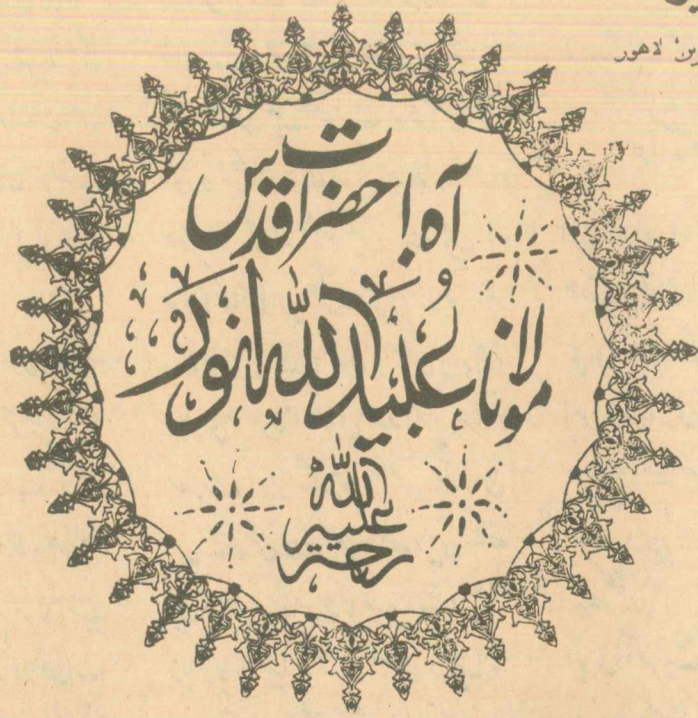 لاهور
آه! حضرت اقدس
مولانا عُبیداللہ انور
رحمۃ اللہ علیہ